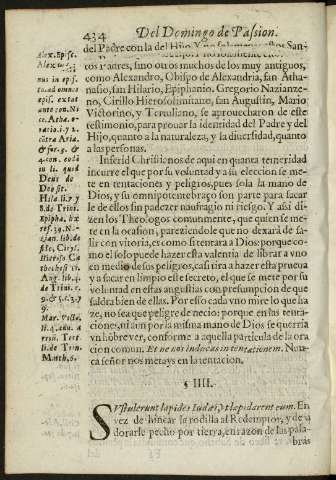 434
Del Domingo de Passion.
del Padre con la del Hijo.
tos Padres, sino otros muchos de los muy antiguos,
como Alexandro, Obispo de Alexandria, san Atha-
nasio, san Hilario, Epiphanio, Gregorio Nazianze-
no, Cirillo Hierosolimitano, san Augustin, Mario
Victorino, y Tertuliano, se aprouecharon de este
testimonio, para prouar la identidad del Padre y del
Hijo, quanto a la naturaleza, y la diuersidad, quanto
a las personas.
Inferid Christianos de aqui en quanta temeridad
incurre el que por su voluntad y a su eleccion se me-
te en tentaciones y peligros, pues sola la mano de
Dios, y su omnipotente braço son parte para sacar
le de ellos sin padezer naufragio ni riesgo. Y assi di-
zen los Theologos comunmente, que quien se me-
te en la ocasion, pareziendole que no dexará de sa-
lir con vitoria, es como si tentara a Dios: porque co-
mo el solo puede hazer esta valentia de librar a vno
en medio de sus peligros, casi tira a hazer esta prueua
y a sacar en limpio este secreto, el que se mete por su
voluntad en estas angustias con presumpcion de que
saldra bien de ellas. Por esso cada vno mire lo que ha
ze, no sea que peligre de necio: porque en las tenta-
ciones, ni aun por la misma mano de Dios se querria
vn hôbre ver, conforme a aquella particula de la ora
cion comun, Et ne nos inducas in tentationem. Nun-
ca señor nos metays en la tentacion.
§ IIII.
SVstulerunt lapides Iudæi, vt lapidarent eum. En
vez de hincar la rodilla al Redemptor, y de a
dorarle pecho por tierra, en razon de las pala-
bras
Alex. Episc.
nus in epis.
to. ad omnes
epis. extat
ante con. Ni-
ce. Atha. o-
ratio. 1. y 2.
côtra Aria.
Deus de
Deo est.
Hila li. 7 y
8. de Trini.
Epipha. hæ
res. 39. Na-
zian. lib. de
fide, Ciryl.
Hieroso. Ca
Aug. lib. 4.
de Trini. c.
9. & 5. c. 3. y
9.
Mar. Victo.
rrin. Tert.
li. de Trin.
Matth. 6.